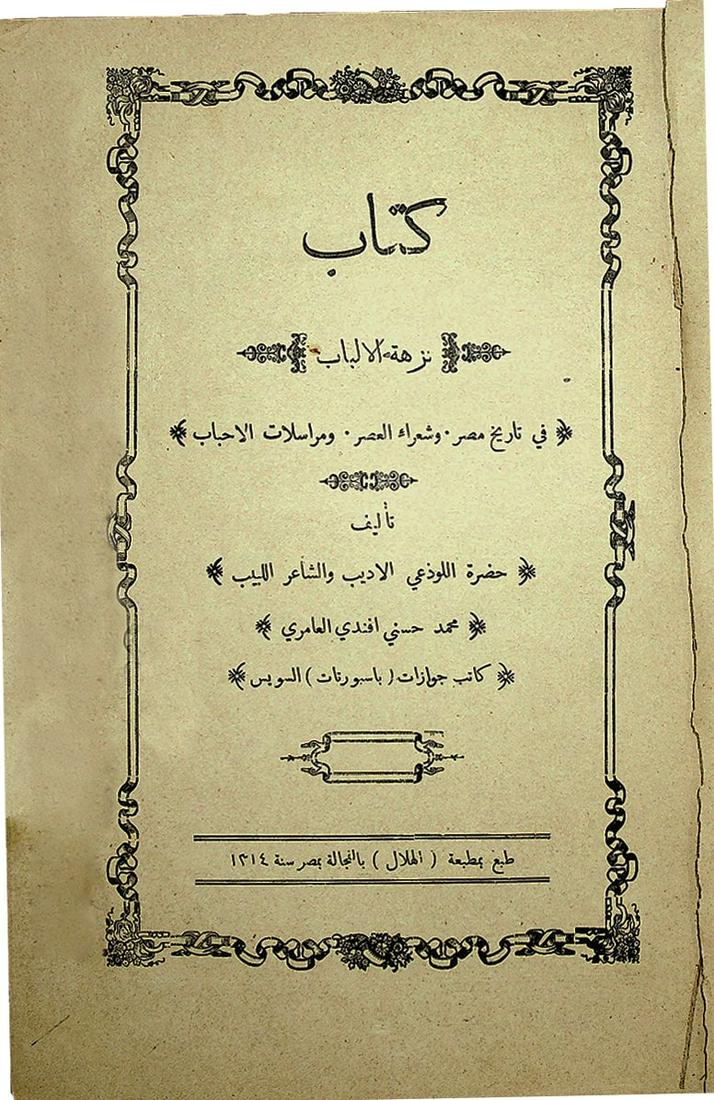 كتاب
نزهة الالباب
في تاريخ مصر · وشعراء العصر · ومراسلات الاحباب
تأليف
حضرة اللوذعي الاديب والشاعر اللبيب
محمد حسني افندي العامري
كاتب جوازات ( باسبورتات ) السويس
طبع بمطبعة ( الهلال ) بالفجالة بمصر سنة ١٣١٤